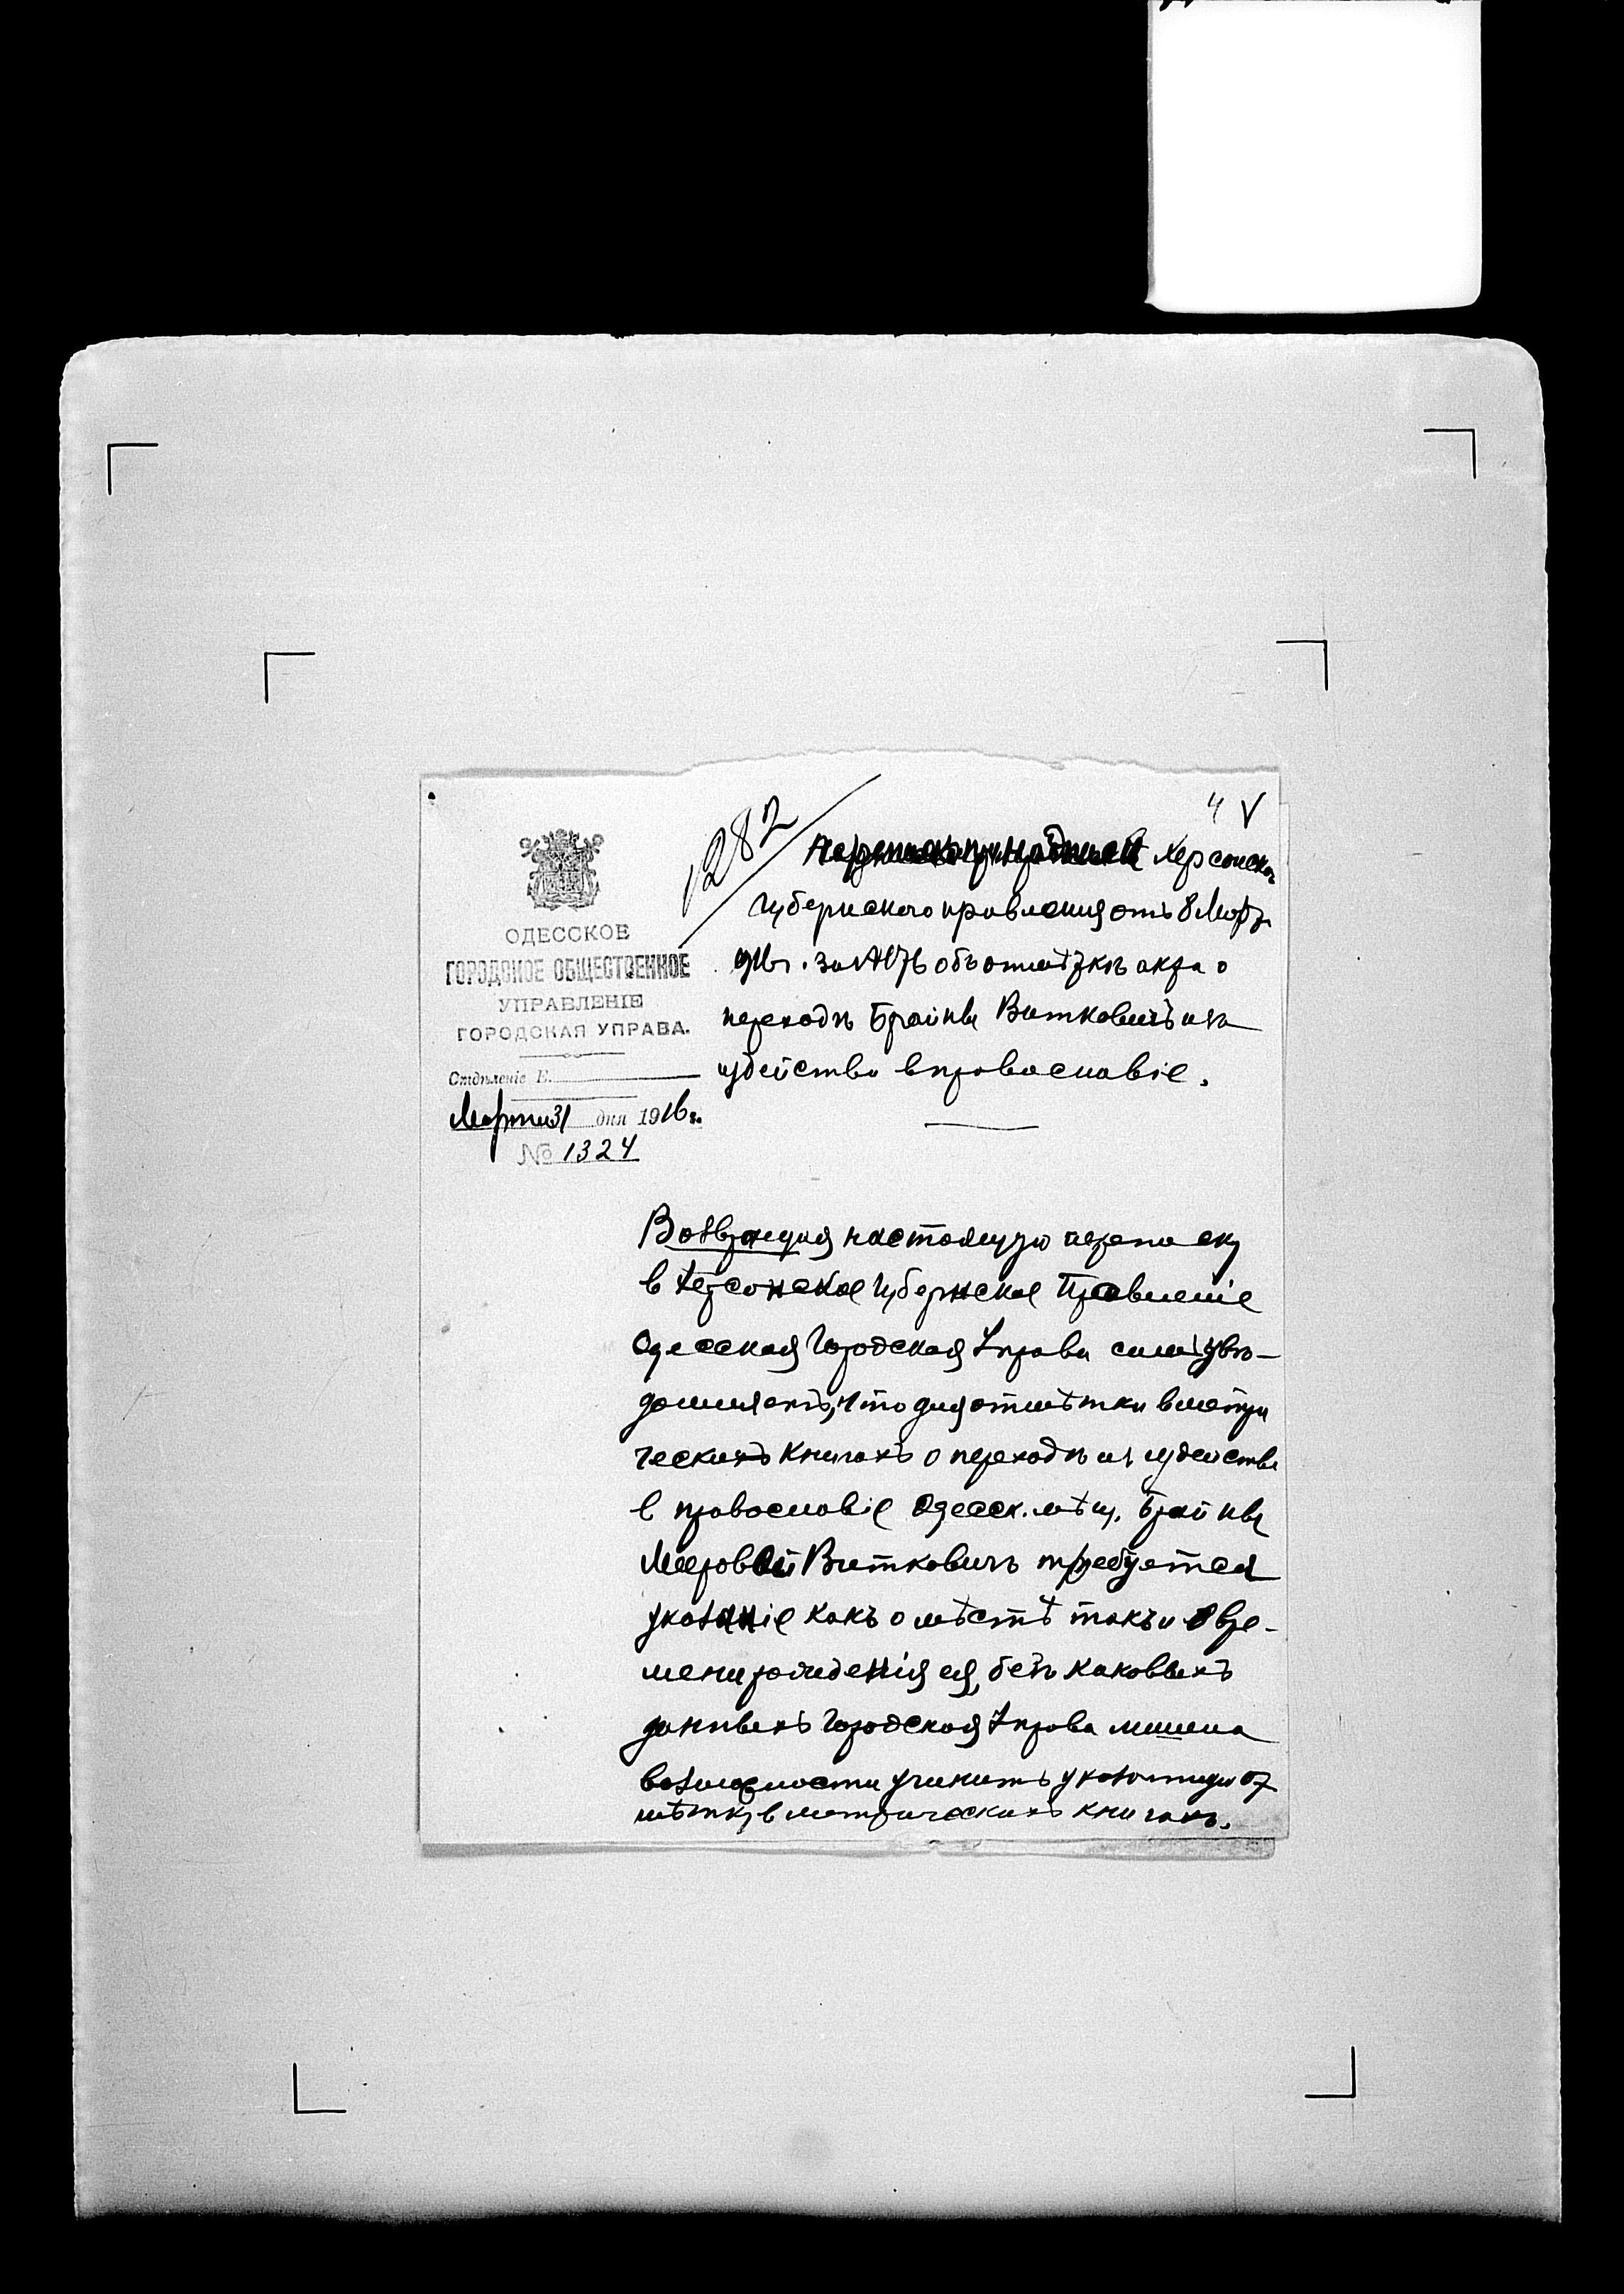 4 V
1282
ОДЕССКОЕ
ГОРОДСКОЕ ОБЩЕСТВЕННОЕ
УПРАВЛЕНІЕ
ГОРОДСКАЯ УПРАВА.
Отдѣленіе Е.
Марта 31 дня 1916 г.
№ 1324
Херсонскаго
Губернскаго правленія отъ 8 Марта
916 г. за № объ отмѣткѣ акта о
переходѣ Брайны Витковичъ изъ
іудейства в православіе.
Возвращая настоящую переписку
в Херсонское Губернское Правленіе
Одесская Городская Управа симъ увѣ-
домляетъ, что для отмѣтки в метри
ческихъ книгахъ о переходѣ из іудейства
в православіе Одесск. мѣщ. Брайны
Мееровой Витковичъ требуется
указаніе какъ о мѣстѣ такъ и о вре-
мени рожденія ея, безъ каковыхъ
данныхъ Городская Управа лишена
возможности учинить указанную от
мѣтку в метрическихъ книгахъ.